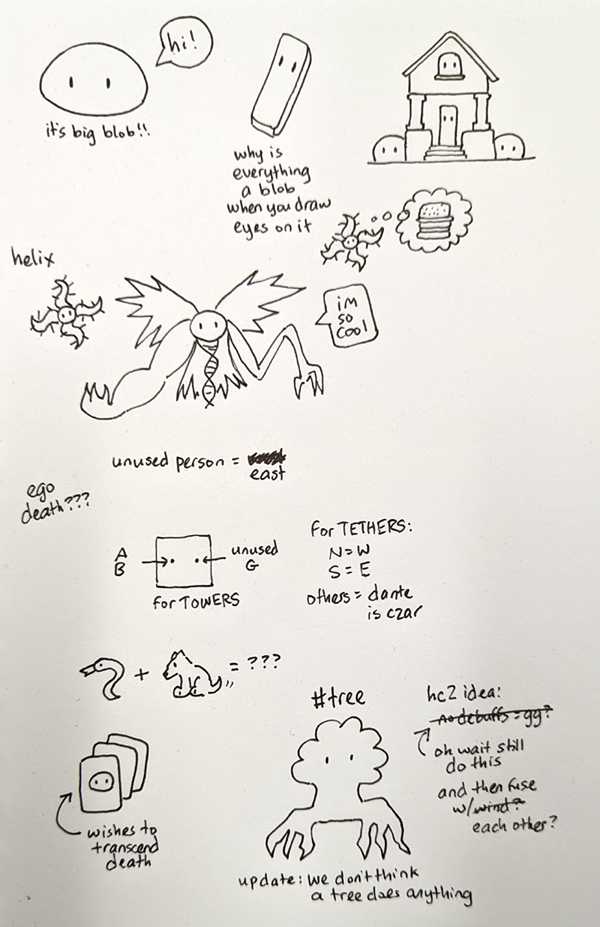 hi!
it's big blob!!
why is
everything
a blob
when you draw
eyes on it
helix
im
so
cool
unused person =
east
ego
death???
A
B
unused
G
for TOWERS
for TETHERS:
N = W
S = E
others = dante
is czar
+ = ???
wishes to
transcend
death
#tree
update: we don't think
a tree does anything
hc2 idea:
no debuffs = gg?
oh wait still
do this
and then fuse
w/ wind?
each other?